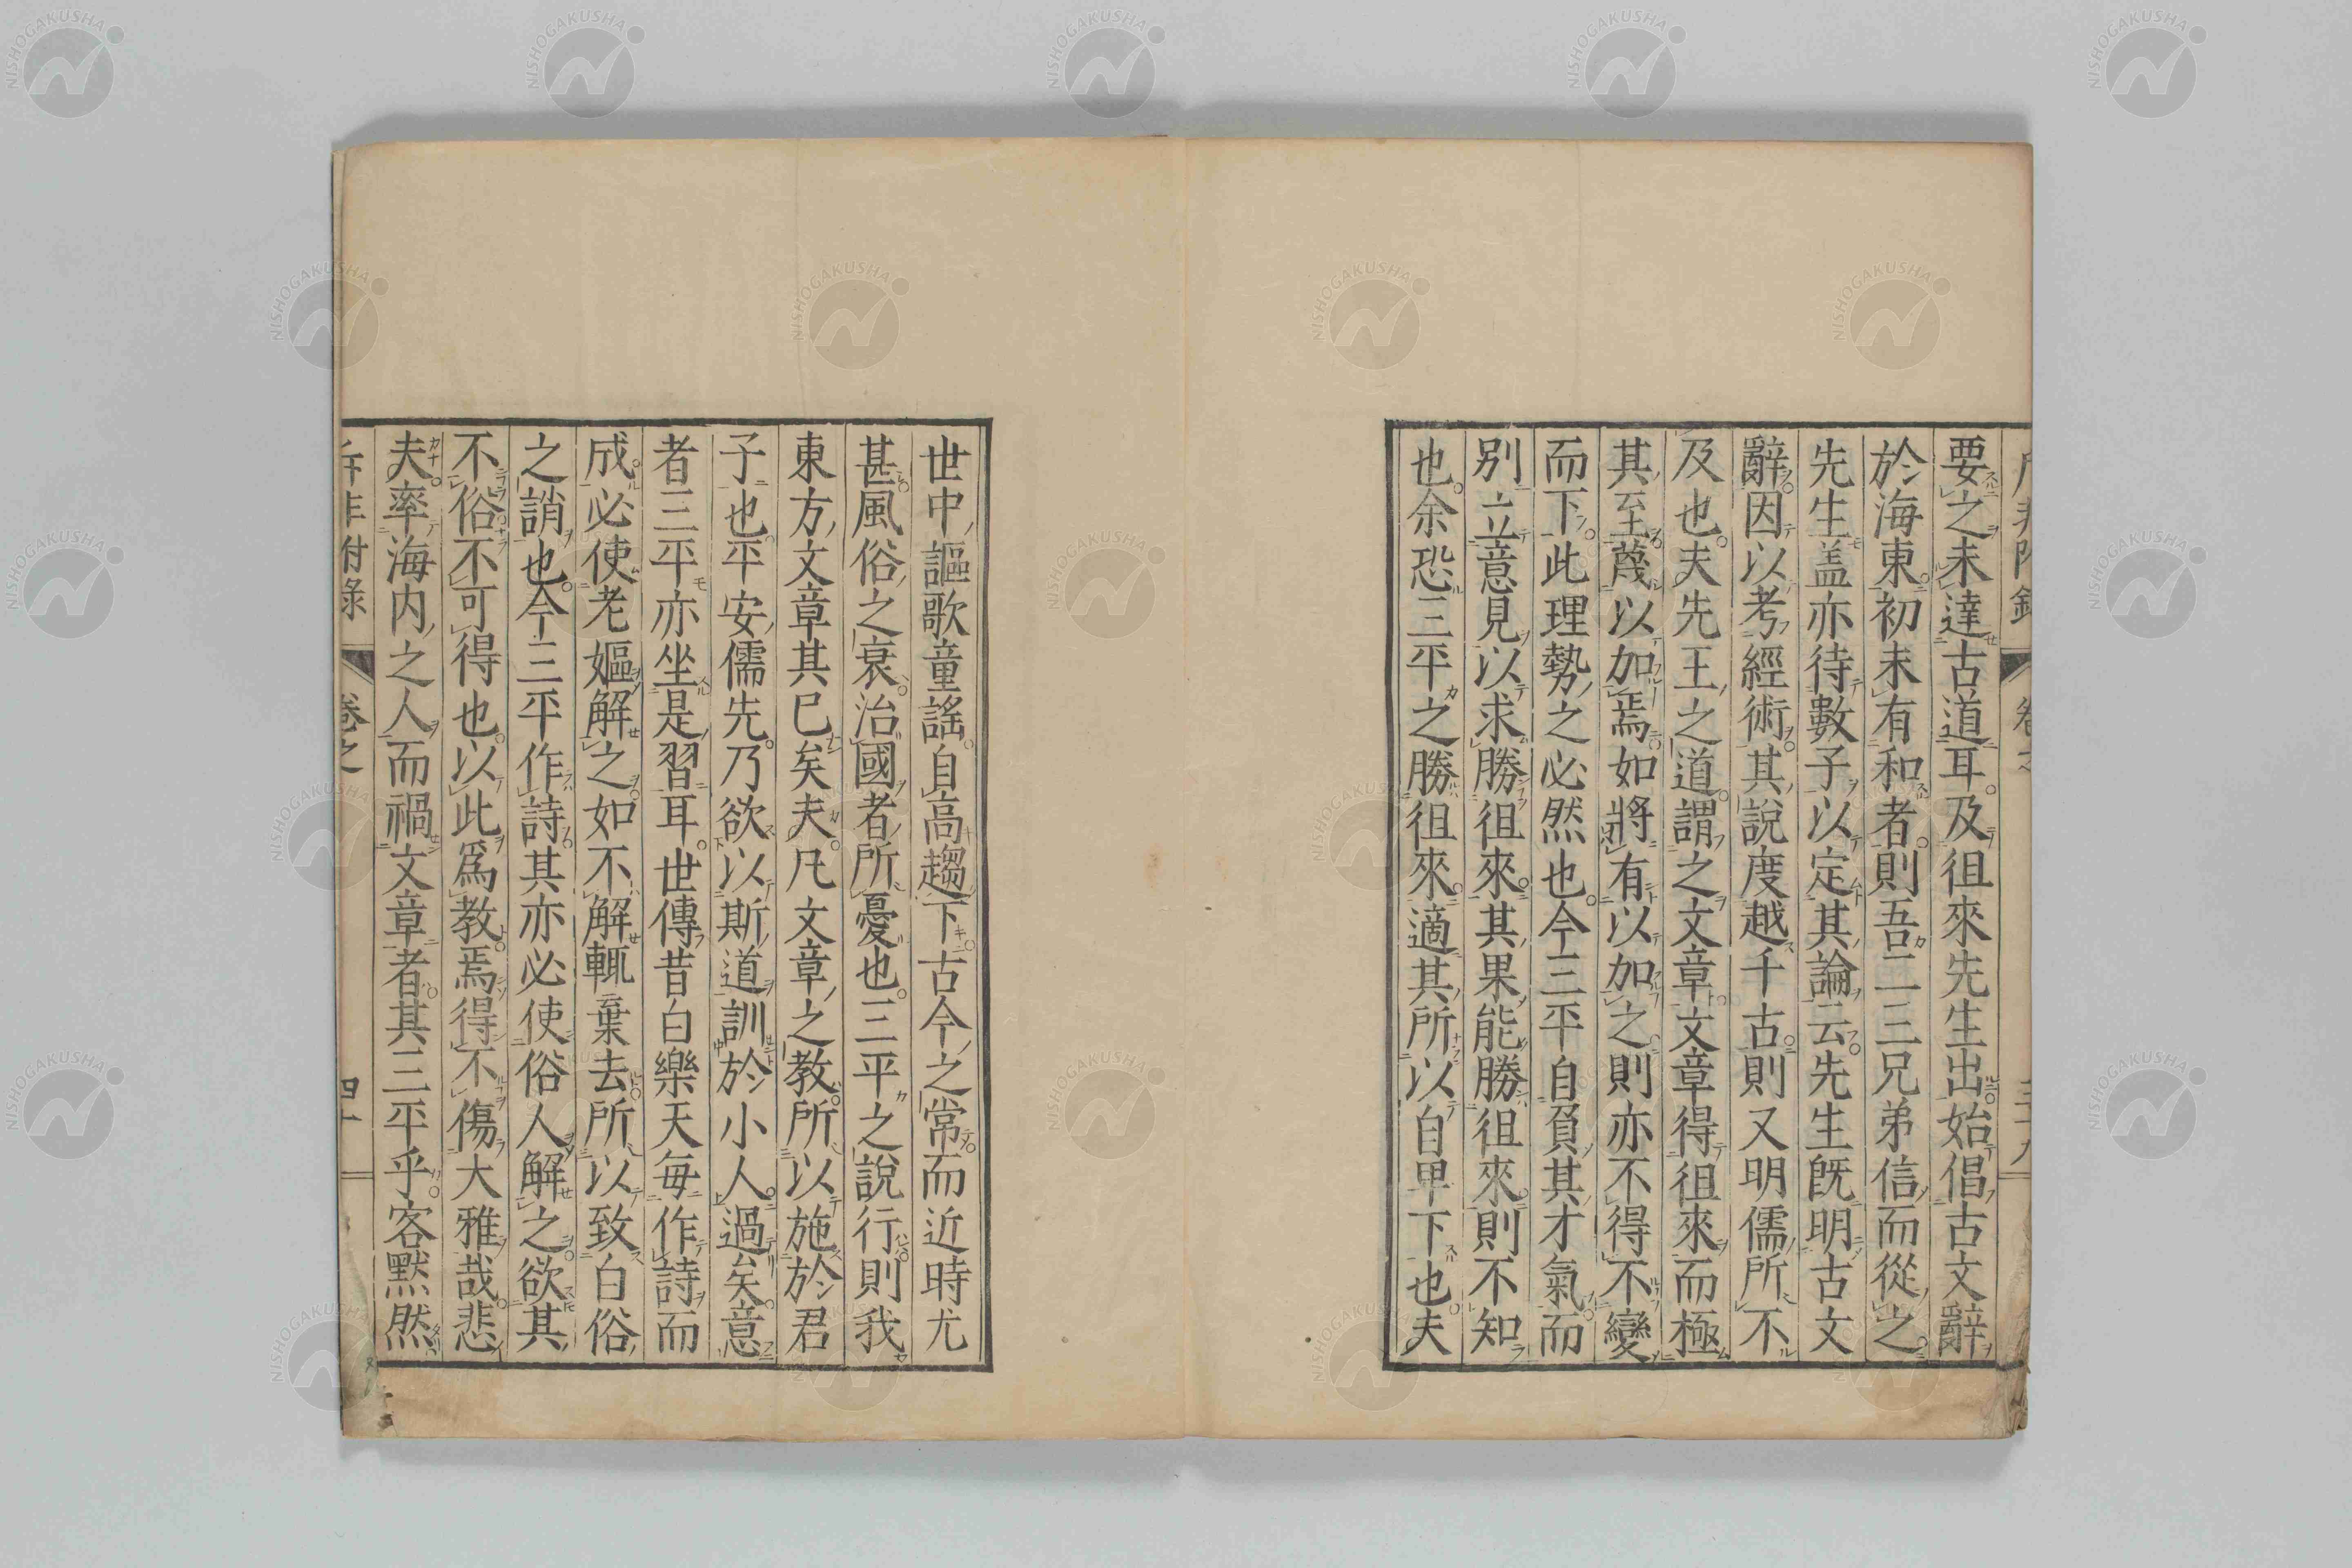 要之未達古道耳及徂來先生出始倡古文辭
於海東初未有和者則吾二三兄弟信而從之
先生盖亦待數子以定其論云先生旣明古文
辭因以考經術其說度越千古則又明儒所不
及也夫先王之道謂之文章文章得徂來而極
其至蔑以加焉如將有以加之則亦不得不變
而下此理勢之必然也今三平自負其才氣而
別立意見以求勝徂來其果能勝徂來則不知
也余恐三平之勝徂來適其所以自卑下也夫
世中謳歌童謠自高趨下古今之常而近時尤
甚風俗之衰治國者所憂也三平之說行則我
東方文章其已矣夫凡文章之教所以施於君
子也平安儒先乃欲以斯道訓於小人過矣意
者三平亦坐是習耳世傳昔白樂天每作詩而
成必使老嫗解之如不解輒棄去所以致白俗
之誚也今三平作詩其亦必使俗人解之欲其
不俗不可得也以此爲教焉得不傷大雅哉悲
夫率海内之人而禍文章者其三平乎客黙然
斥非附錄 卷之 四十
NISHOGAKUSHA